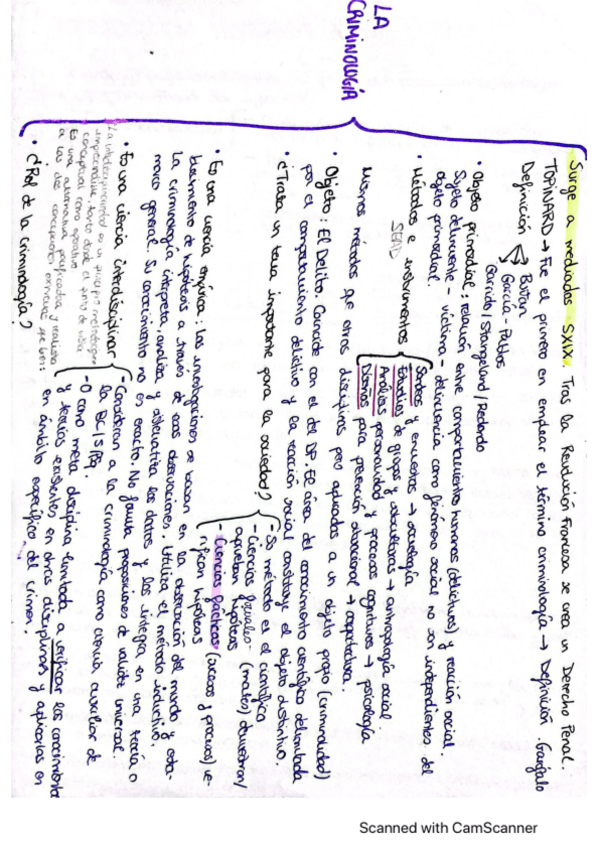 LA
CRIMINOLOGÍA
Surge a mediados SXIX. Tras la Revolución Francesa se crea un Derecho Penal.
TOPINARD → Fue el primero en emplear el término criminología → Definición. Garofalo
Definición
Butón
García-Pablos
Garrido / Stangeland / Redondo
• Objeto primordial: relación entre comportamientos humanos (delictivos) y reacción social.
Sujeto delincuente - víctima - delincuencia como fenómeno social no son independientes del
objeto primordial.
• Métodos e instrumentos
SEAD
Sondeos y encuestas → sociología
Estudios de grupos y subculturas → antropología social
Análisis personalidad y procesos cognitivos → psicología
Diseños para prevención situacional → arquitectura.
Mismos métodos que otras disciplinas pero aplicados a un objeto propio (criminalidad)
• Objeto: El Delito. Coincide con el del DP. El área del conocimiento científico delimitada
por el comportamiento delictivo y la reacción social constituye el objeto distintivo.
• ¿Trata un tema importante para la sociedad?
- Su método es el científico
- Ciencias formales - (mates) demuestran/
inventan hipótesis
- Ciencias fácticas (sucesos y procesos) ve-
rifican hipótesis
• Es una ciencia empírica: las investigaciones se basan en la observación del mundo y esta-
blecimiento de hipótesis a través de esas observaciones. Utiliza el método inductivo.
La criminología interpreta, analiza y sistematiza los datos y los integra en una teoría o
marco general. Su conocimiento no es exacto. No formula proposiciones de validez universal.
• Es una ciencia interdisciplinar
- Consideran a la criminología como ciencia auxiliar de
la BC/S/Pq.
- O como meta disciplina limitada a verificar los conocimientos
y teorías existentes en otras disciplinas y aplicarlos en
en ámbito específico del crimen.
La interdisciplinariedad es un principio metodológico
imprescindible, tanto desde el punto de vista
conceptual como operativo
Es una alternativa pacificadora y realista
a las dos concepciones
• ¿Rol de la criminología?
Scanned with CamScanner